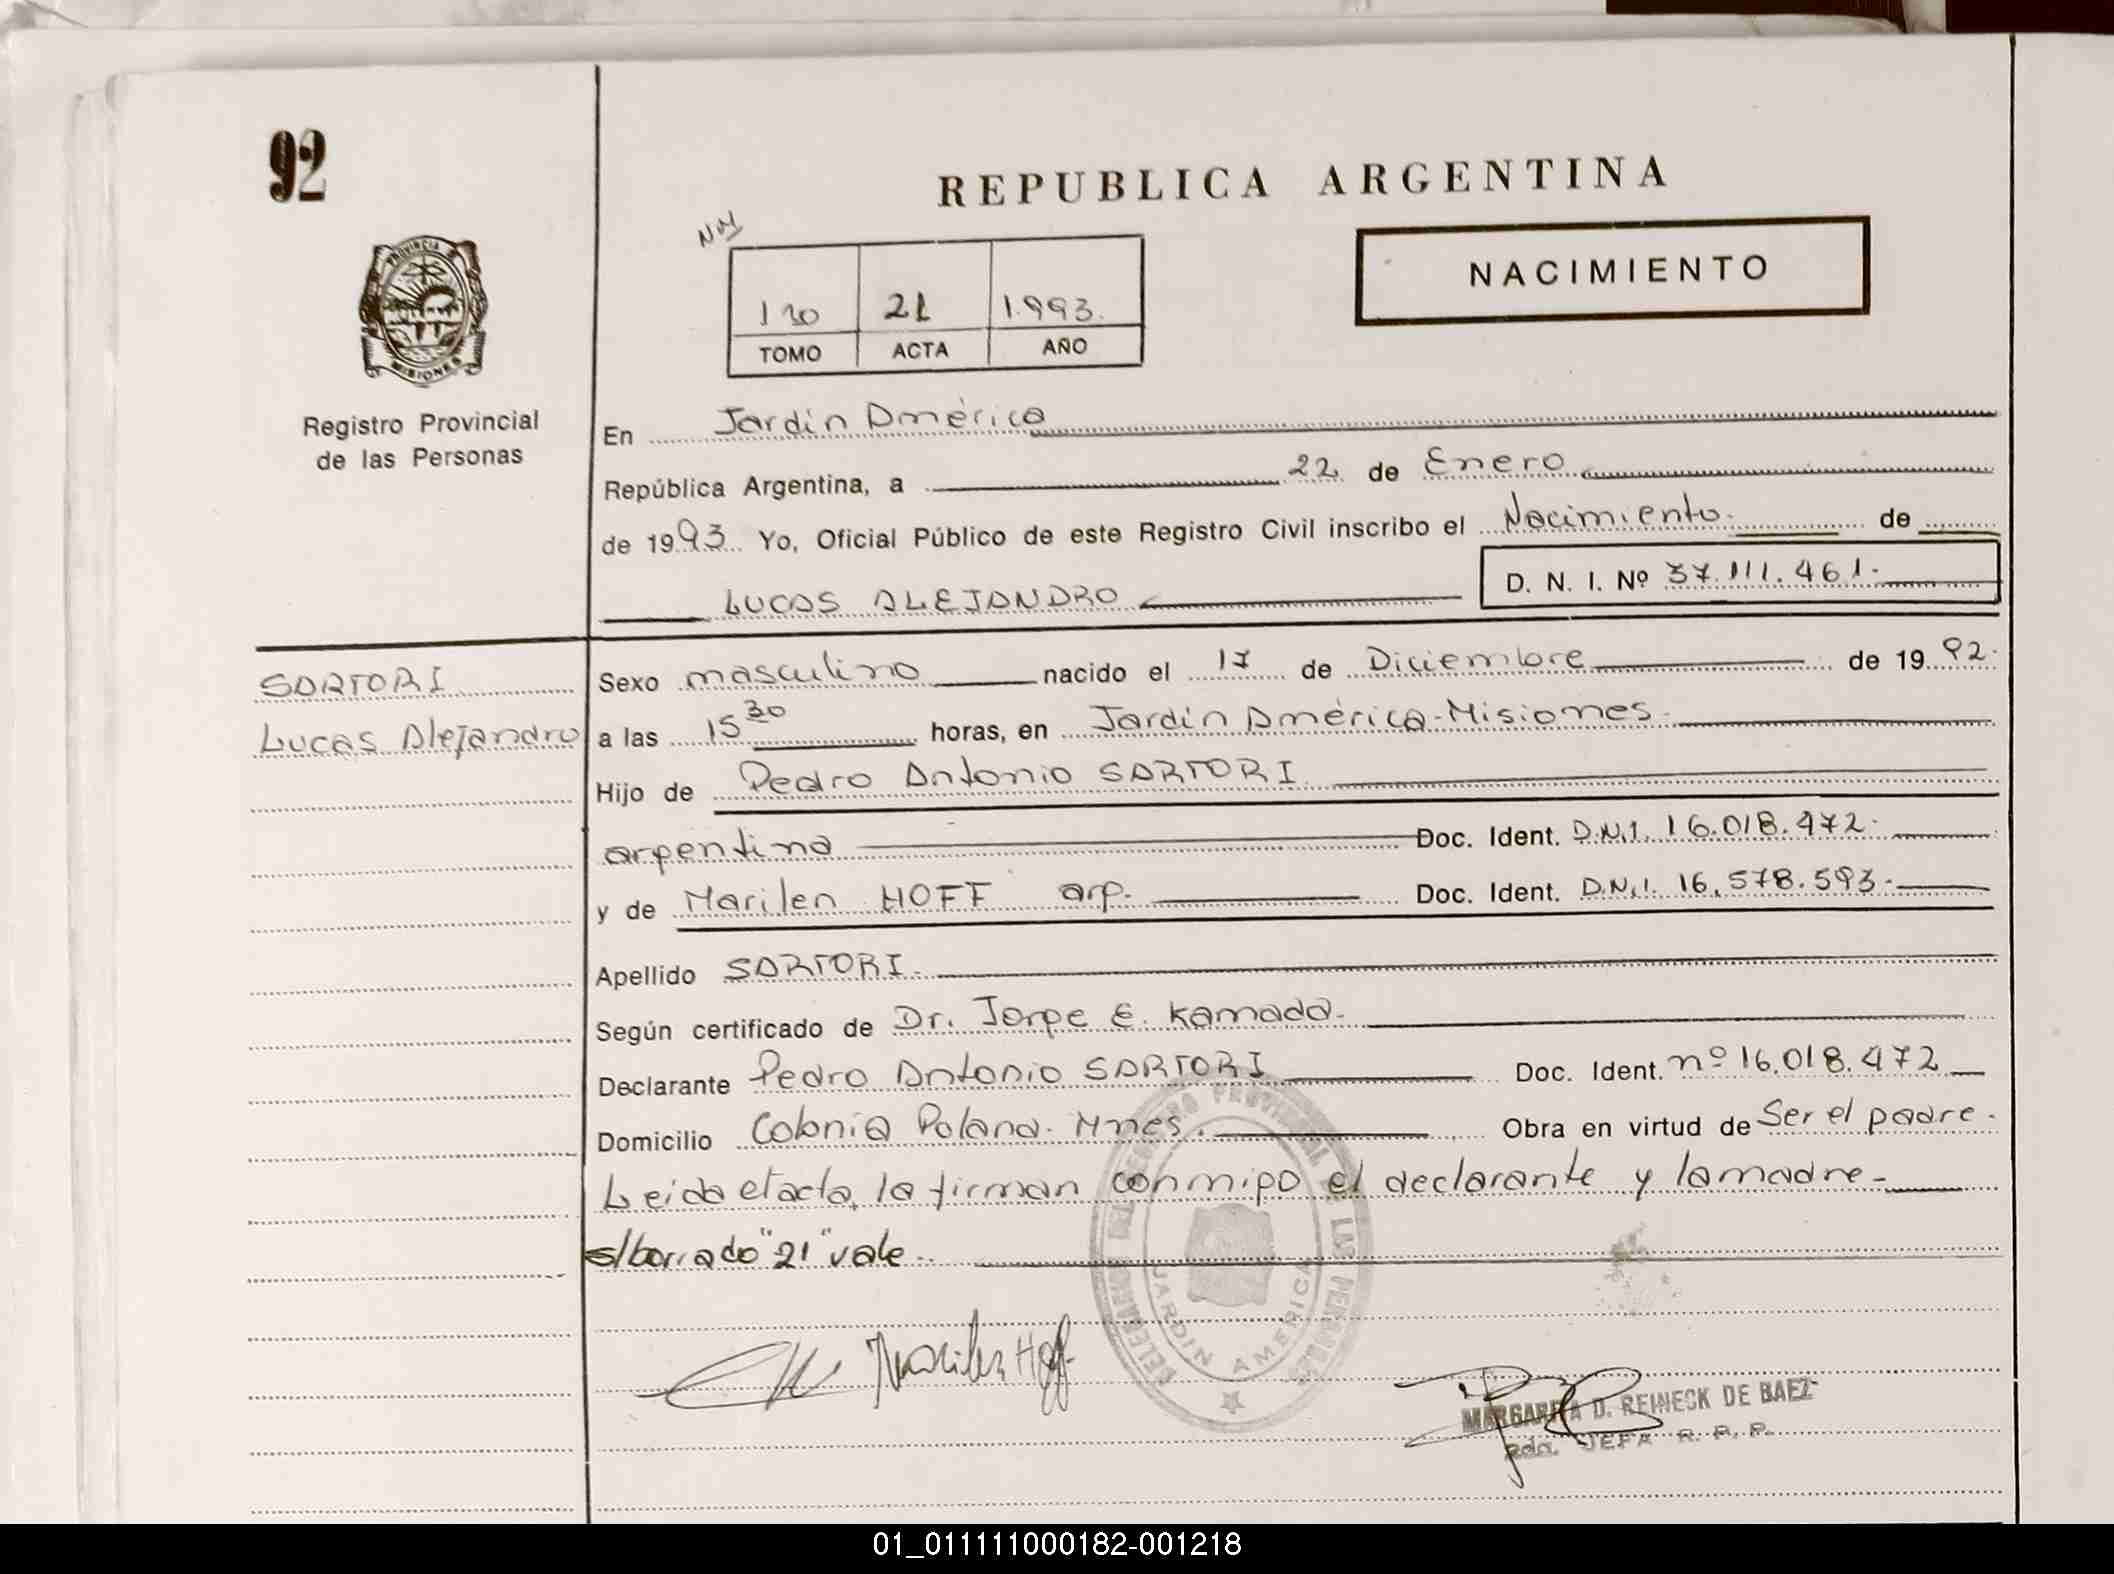 92
REPUBLICA ARGENTINA
PROVINCIA
MISIONES
NACIMIENTO
21 1.993.
TOMO ACTA AÑO
Registro Provincial
de las Personas
En Jardín América
República Argentina, a 22 de Enero
de 1993. Yo, Oficial Público de este Registro Civil inscribo el Nacimiento. de
LUCAS ALEJANDRO D. N. I. Nº 37.111.461.
SARTORI
Lucas Alejandro
Sexo masculino nacido el 17 de Diciembre de 1992.
a las 15 30 horas, en Jardín América-Misiones.
Hijo de Pedro Antonio SARTORI
argentina Doc. Ident. D.N.I. 16.018.472.
y de Marilen HOFF arg. Doc. Ident. D.N.I. 16.578.593.
Apellido SARTORI.
Según certificado de Dr. Jorge E. Kamada.
Declarante Pedro Antonio SARTORI Doc. Ident. nº 16.018.472
Domicilio Colonia Polana. Mnes. Obra en virtud de Ser el padre.
Leida el acta, la firman conmigo el declarante y la madre.
s/borrado "21" vale.
DEL REGISTRO PROVINCIAL DE LAS PERSONAS
JARDIN AMERICA
Marilen Hoff
MARGARITA D. REINECK DE BAEZ
2da. JEFA R. P. P.
01_011111000182-001218